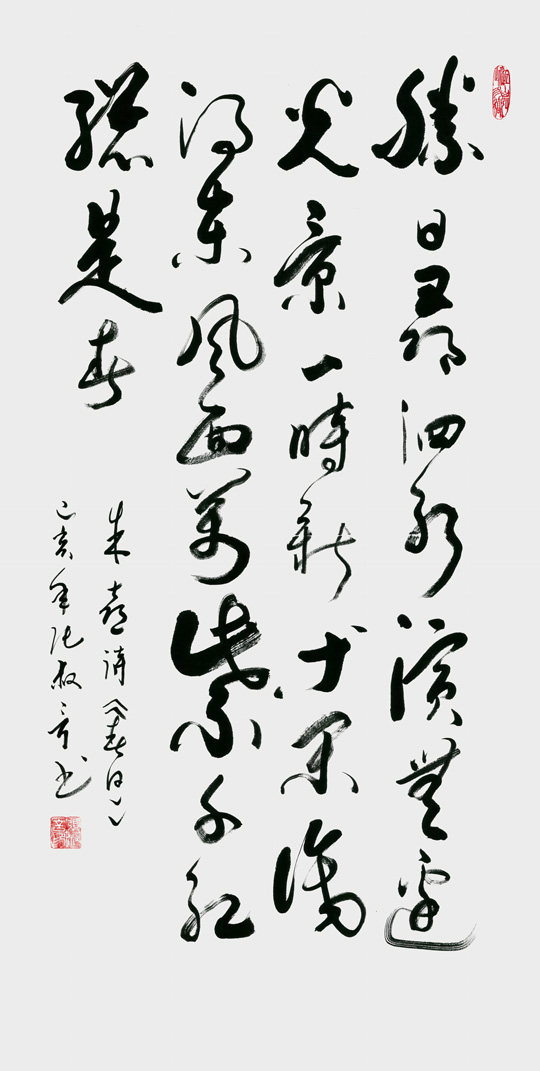 勝日尋泗水濱無邊
光景一時新等閒識
得東風面萬紫千紅
總是春
朱熹詩《春日》
己亥年叔書